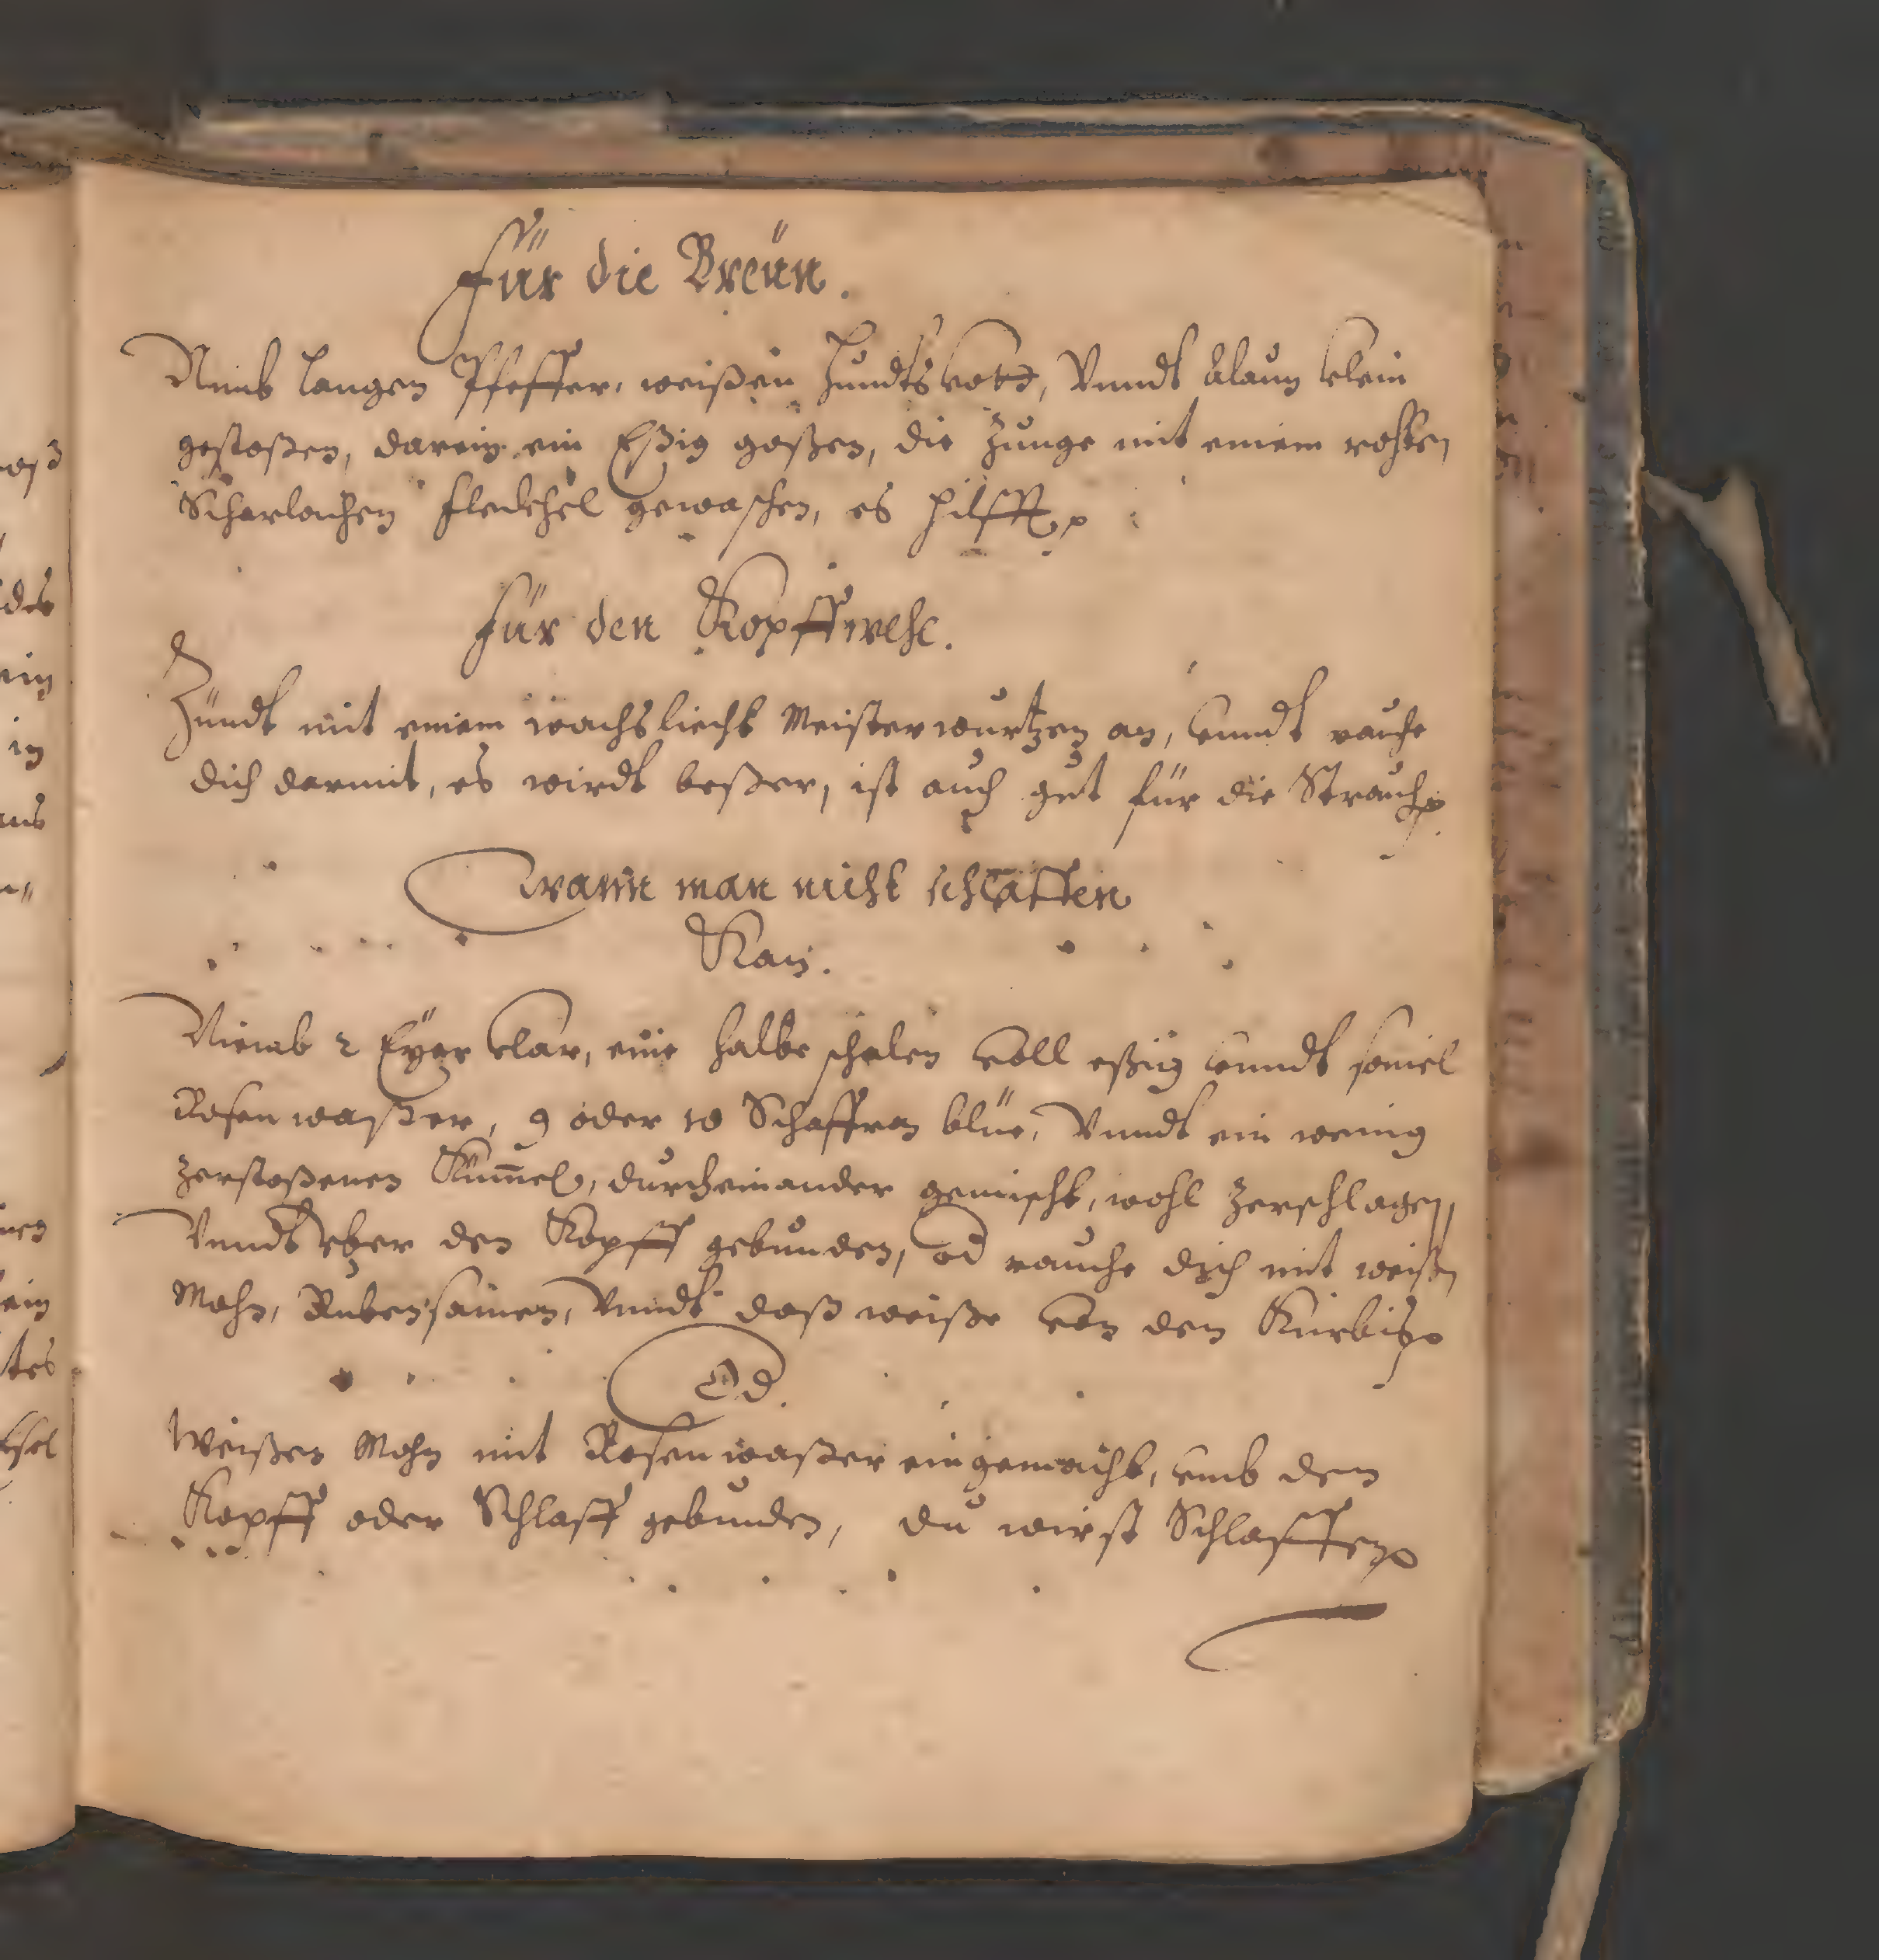 Für die Breün.
Nimb langen Pfeffer, weißen Hundtskott, Vnndt Alaun klein
gestoßen, darein ein Eßig goßen, die Zunge mit einem rohten
Scharlachen fleckhel gewaschen, es hilfft
Für den Kopffwehe.
Zündt mit einem wachsliecht Meisterwurtzen an, vnndt rauche
dich darmit, es wirdt beßer, ist auch gut für die Strauch
Wann man nicht schlaffen
Kan.
Niemb 2 Eyer klar, eine halbe schalen voll eßig vnndt souiel
Rosenwaßer, 9 oder 10 Schaffran blüe, Vnndt ein wenig
zerstoßenen Kümel, durcheinander gemischt, wohl zerschlagen,
Vnndt vber den Kopff gebunden, od rauche dich mit weißen
Mohn, Rubensamen, Vnndt daß weiße von den Kürbis
Od.
Weißen Mohn mit Rosenwaßer eingemacht, vmb den
Kopff oder Schlaff gebunden, du wirst Schlaffen